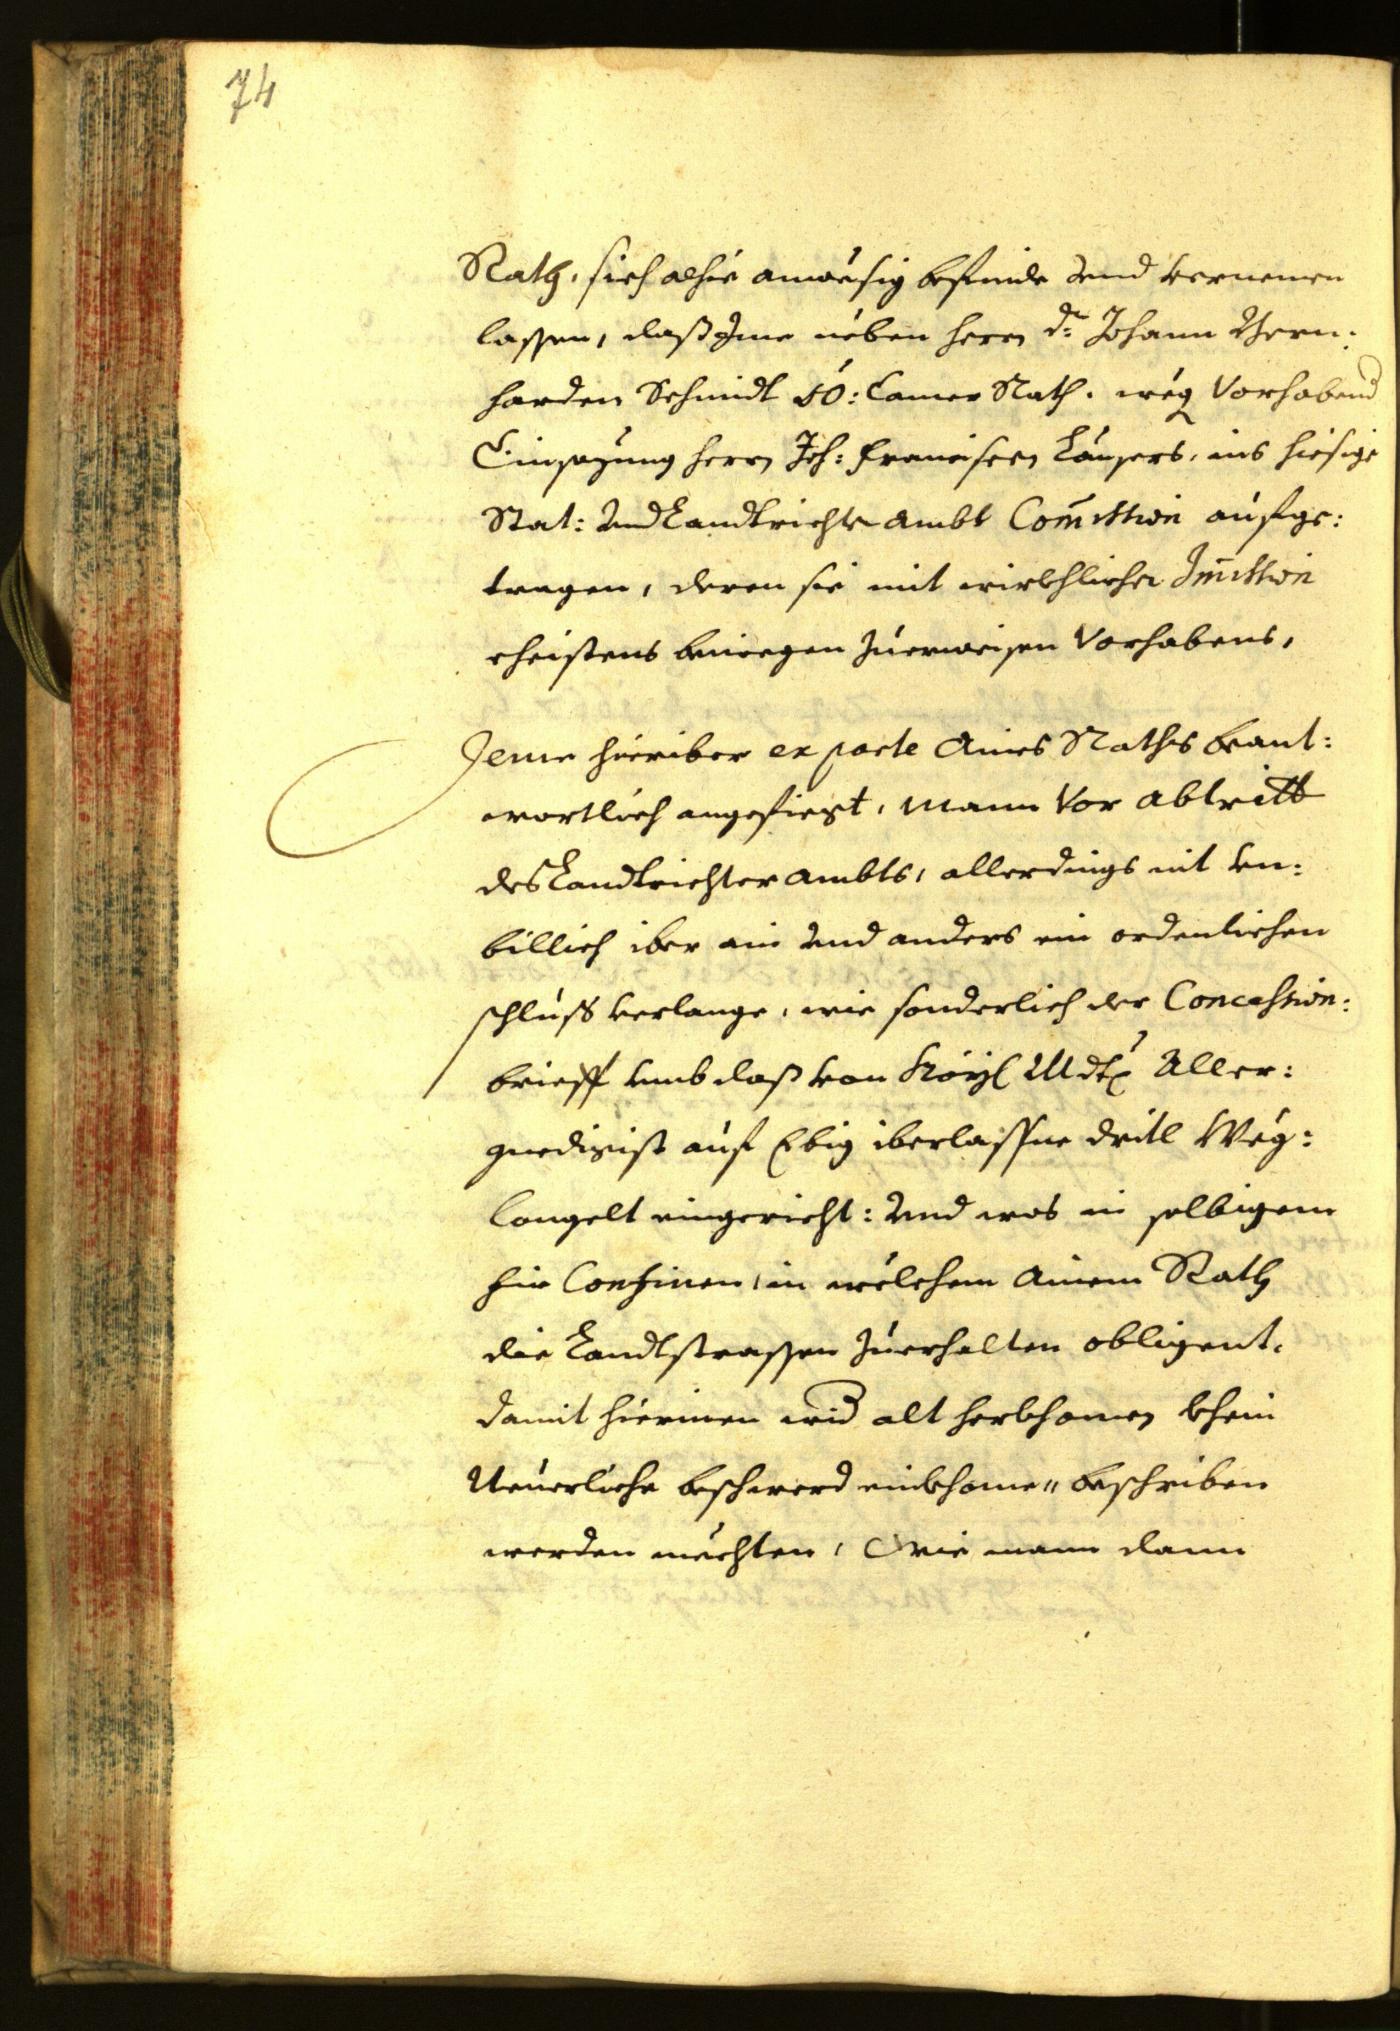 74
Rath, sich alhie anwesig befinde und vernemen
lassen, daß Ime neben herrn Dr: Johann Bern:
harden Schmidt OÖ: Camer Rath. weg Vorhabend
Einsazung herrn Joh: Franciscen ins hiesige
Stat: und Landtrichter Ambt Commission aufge:
tragen, deren sie mit wirkhlicher Immission
ehistens beniegen zuerweisen Vorhabens,
Deme hieriber ex parte Aines Raths beant:
wortlich angefiegt, Mann Vor Abtritt
des Landtrichter Ambts, allerdings nit un:
billich iber ain und anders ein ordenlichen
schluß verlange, wie sonderlich der Concession:
brieff umb daß von Kayl Mdt Aller:
gnedigist auf Ebig iberlassne dritl Weg:
longelt eingericht: und was in selbigem
für Confinen, in welchem Ainem Rath
die Landtstrassen zuerhalten obligent,
damit hierinen wid alt herkhomen khein
Neuerliche beschwerd einkhome" beschriben
werden mechten, Wie mann dann